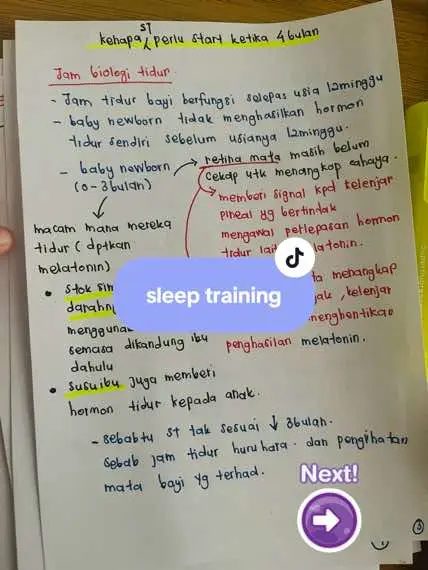 ST
kenapa perlu start ketika 4 bulan
Jam biologi tidur
- Jam tidur bayi berfungsi selepas usia 12minggu
- baby newborn tidak menghasilkan hormon
tidur sendiri sebelum usianya 12minggu.
- baby newborn
(0-3bulan)
retina mata masih belum
cekap utk menangkap cahaya.
memberi signal kpd kelenjar
pineal yg bertindak
mengawal perlepasan hormon
tidur
macam mana mereka
tidur (dptkan
melatonin)
menangkap
, kelenjar
menghentikan
penghasilan melatonin.
• stok
darah
semasa dikandung ibu
dahulu
• susu ibu juga memberi
hormon tidur kepada anak.
- sebab tu ST tak sesuai ↓ 3bulan.
sebab jam tidur huru hara. dan pengihatan
mata bayi yg terhad.
sleep training
Next!